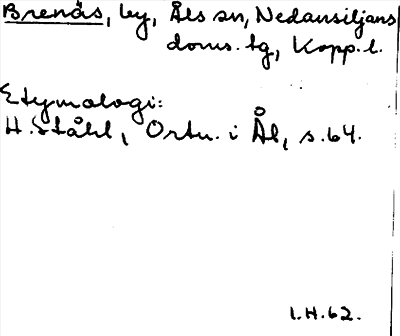 Brenäs, by, Åls sn, Nedansiljans
doms. tg, Kopp. l.
Etymologi:
H. Ståhl, Ortn. i Ål, s. 64.
I.H.62.